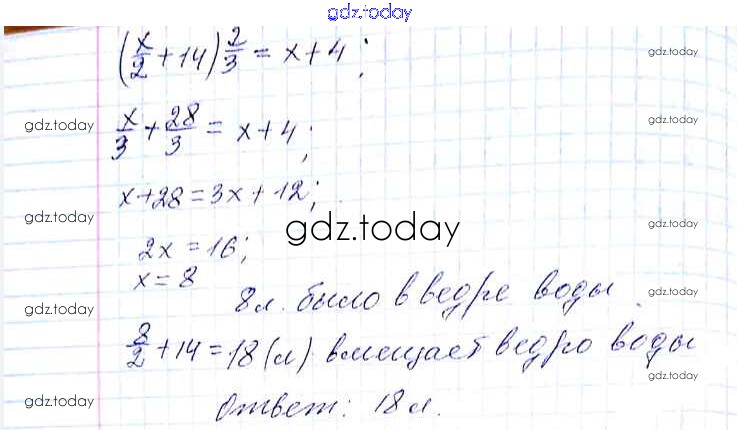 gdz.today
(x/2 + 14) 2/3 = x + 4;
gdz.today
gdz.today
x/3 + 28/3 = x + 4;
gdz.today
gdz.today
x + 28 = 3x + 12;
gdz.today
gdz.today
gdz.today
2x = 16;
x = 8
gdz.today
8 л. было в ведре воды.
gdz.today
8/2 + 14 = 18 (л) вмещает ведро воды
gdz.today
gdz.today
Ответ: 18 л.